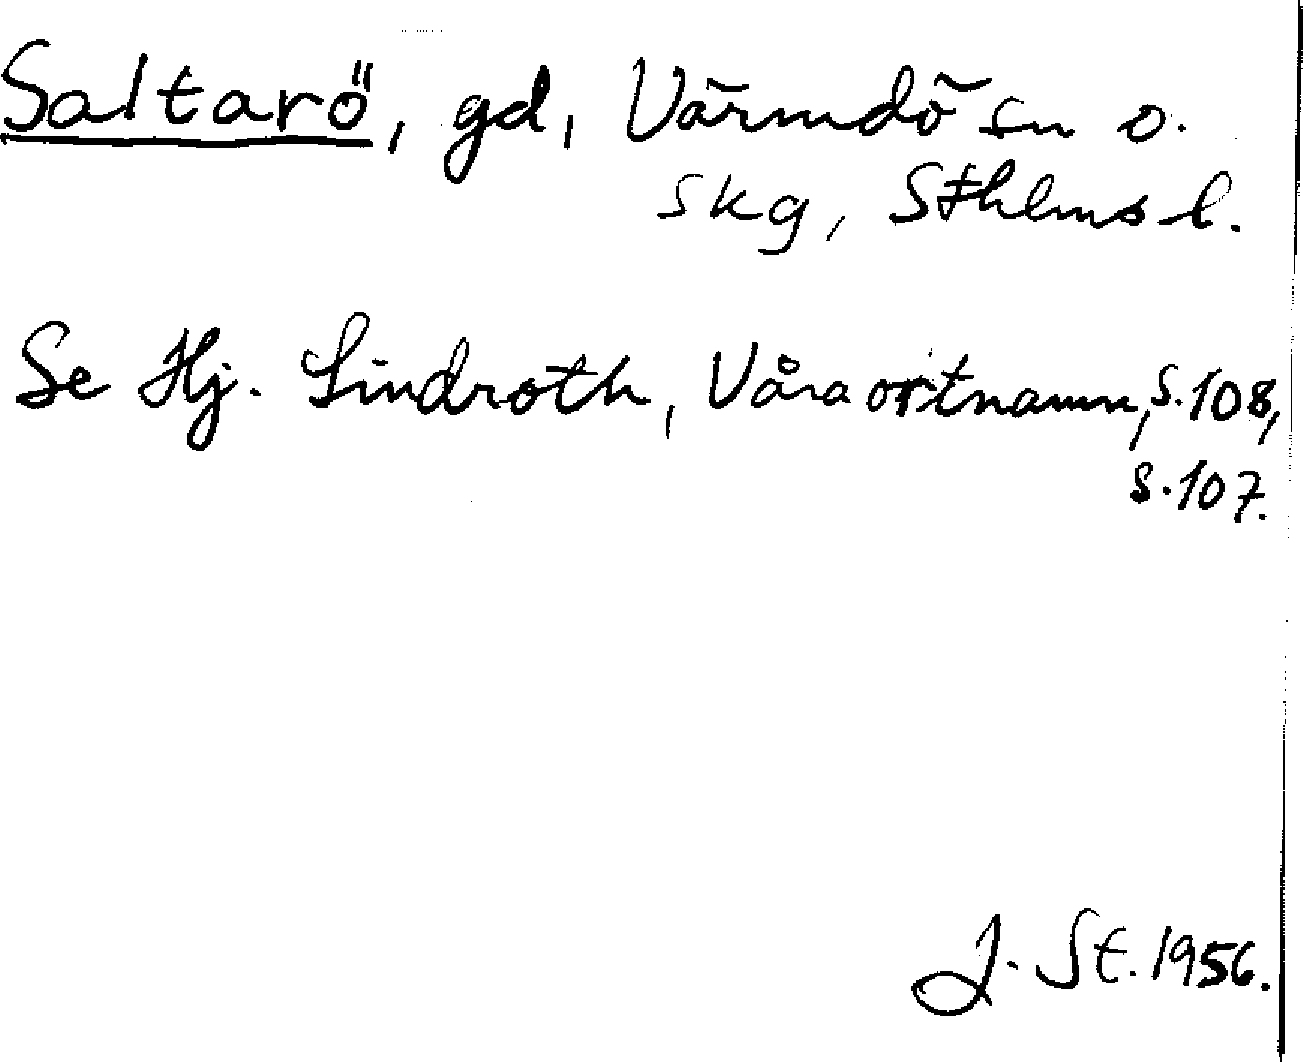 Saltarö, gd, Värmdö sn o.
skg, Sthlms l.
Se Hj. Lindroth, Våra ortnamn, s. 108,
s. 107.
J. St. 1956.